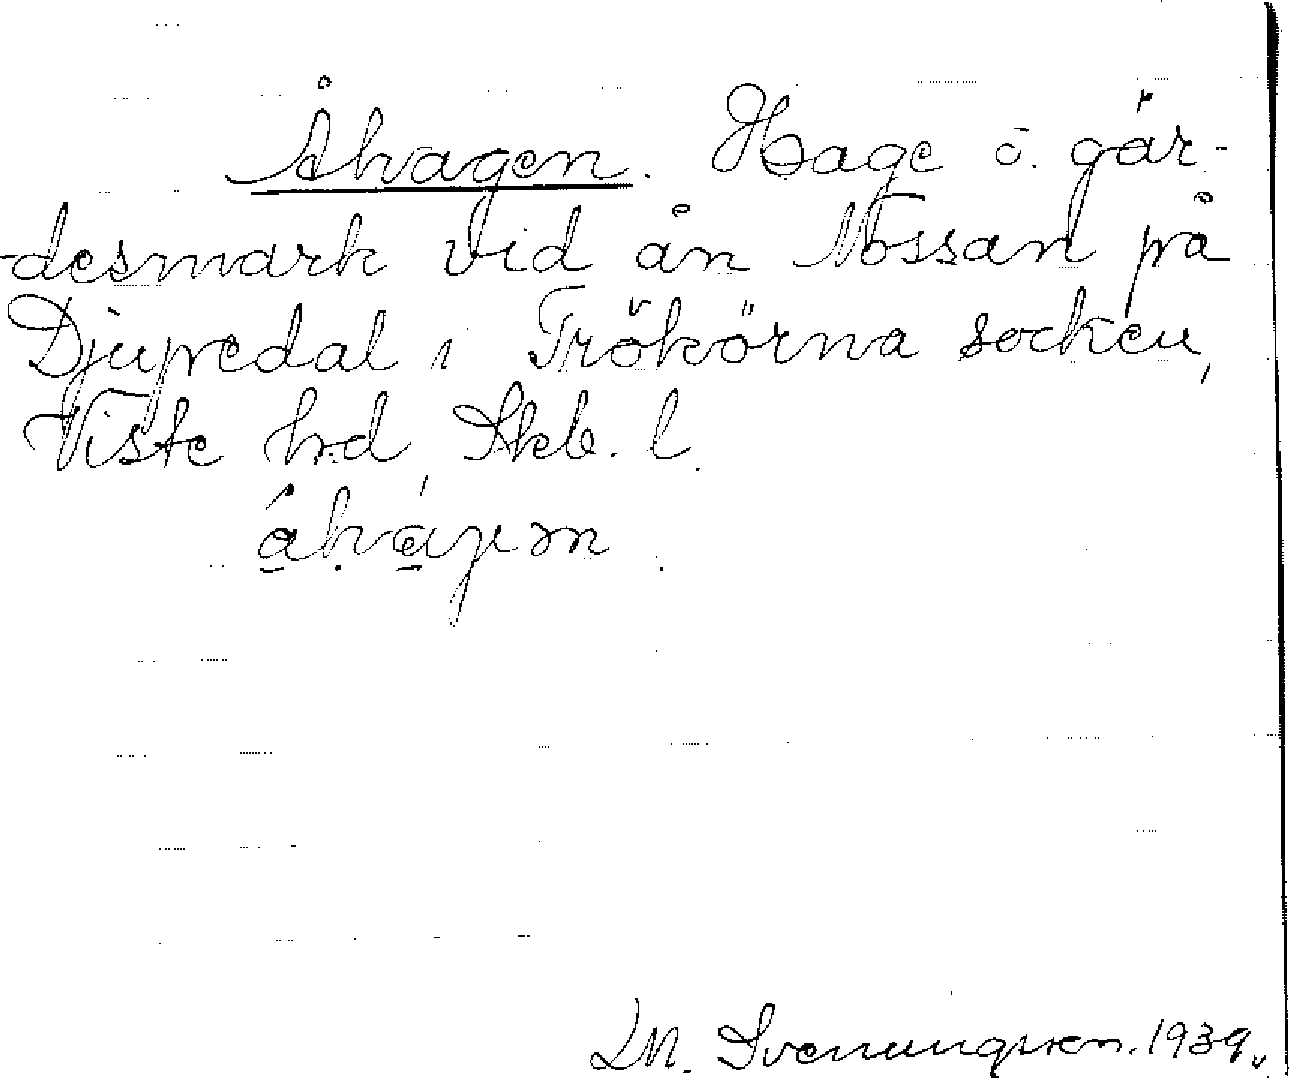 Åhagen. Hage o. går-
desmark vid ån Nossan på
Djupedal i Trökörna socken,
Viste hd, Skb. l.
Svenungsson. 1939.